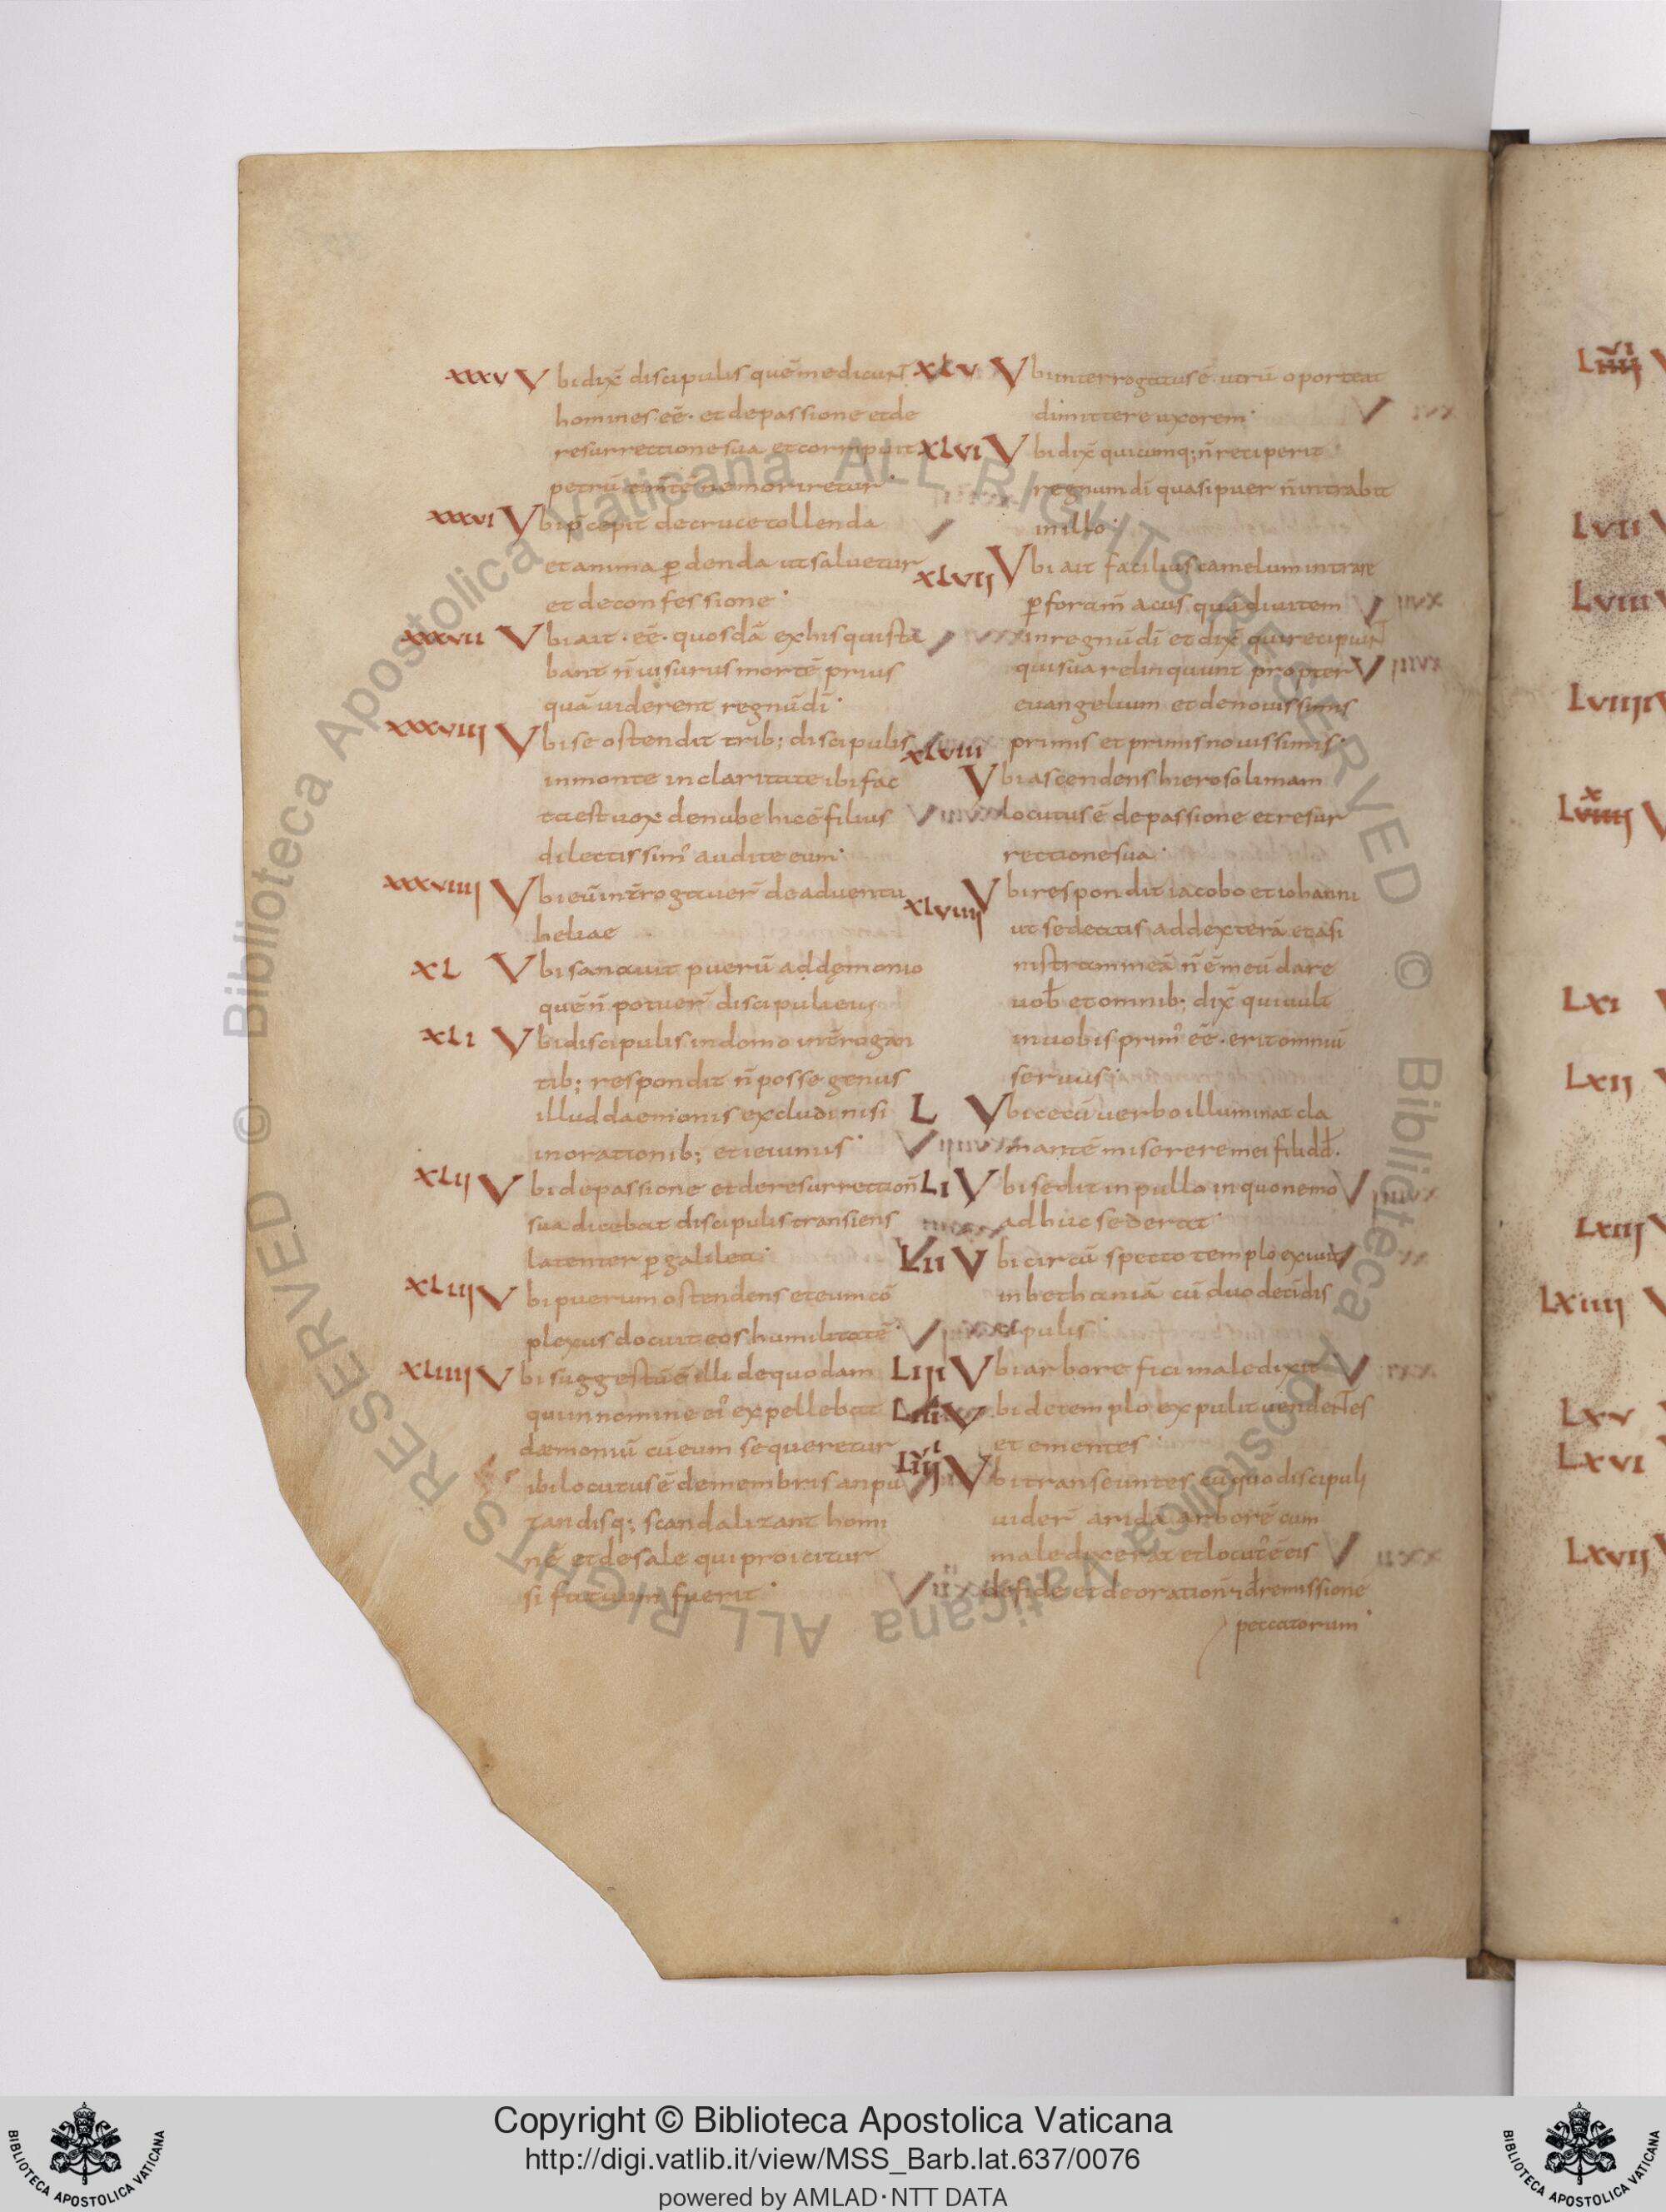 xxxv Vbi dix̄ discipulis quē me dicunt
homines eē· et de passione et de
resurrectione sua et corripuit
petrū timtē ne moriretur·
xxxvi Vbi p̄cepit de cruce tollenda
et anima ꝑdenda ut saluetur
et de confessione·
xxxvii Vbi ait· eē· quosdā ex his qui sta
bant n̄ uisurus mortē prius
quā uiderent regnū dī·
xxxviij Vbi se ostendit trib; discipulis
in monte in claritate ibi fac
ta est uox de nube hic ē filius
dilectissim' audite eum·
xxxviiij Vbi eū int̄rogauer̄ de aduentu
heliae
xl Vbi sanauit puerū ad dęmonio
quē n̄ potuer̄ discipuli eius
xli Vbi discipulis in domo int̄rogan
tib; respondit n̄ posse genus
illud daemonis excludi nisi
in orationib; et ieiunus·
xlij Vbi de passione et de resurrection̄
sua dicebat discipulis transiens
latenter ꝑ galilea·
xliij Vbi puerum ostendens et eum cō
plexus docuit eos humilitatē·
xliiij Vbi suggestū ē illi de quodam
qui in nomine ei' expellebat
dæmoniū cū eum sequeretur
ibi locutus ē de membris anpu
tandisq; scandalizant homi
nē et de sale qui proicitur
si fatuum fuerit·
xlv Vbi interrogatus ē utrū oporteat
dimittere uxorem·
xlvi Vbi dix̄ quicumq; n̄ reciperit
regnum dī quasi puer n̄ intrabit
in illo·
xlvij Vbi ait facilius camelum intrare
ꝑ foram̄ acus quā diuitem
in regnū dī et dix̄ qui recipiunt
qui sua relinquunt propter
euangelium et de nouissimis
primis et primis nouissimis·
xlviii Vbi ascendens hierosolimam
locutus ē de passione et resur
rectione sua·
xlviiij Vbi respondit iacobo et iohanni
ut sedeatis ad dexterā et a si
nistram meā n̄ ē meū dare
uob̄ et omnib; dix̄ qui uult
in uobis prim' eē· erit omniū
seruus·
L Vbi cecū uerbo illuminat cla
mantē miserere mei fili dd̄·
Li Vbi sedit in pullo in quo nemo
adhuc sederat·
Lii Vbi circū specto templo exiuit
in bethaniā cū duodeci dis
cipulis·
Liji Vbi arbore fici maledixit
Liiii Vbi de templo expulit uendentes
et ementes·
Vbi transeuntes cū quo discipuli
uider̄ aridā arborē cum
maledixerat et locut' ē eis
de fide et de oration̄ & d̄ remissione
peccatorum·
Liiij
Lvii
Lviii
Lviiij
Lviiij
Lxi
Lxij
Lxiij
Lxiiii
Lxv
Lxvi
Lxvij
© Biblioteca Apostolica Vaticana ALL RIGHTS RESERVED © Biblioteca Apostolica Vaticana ALL RIGHTS RESERVED
BIBLIOTECA APOSTOLICA VATICANA
Copyright © Biblioteca Apostolica Vaticana
http://digi.vatlib.it/view/MSS_Barb.lat.637/0076
powered by AMLAD·NTT DATA
BIBLIOTECA APOSTOLICA VATICANA